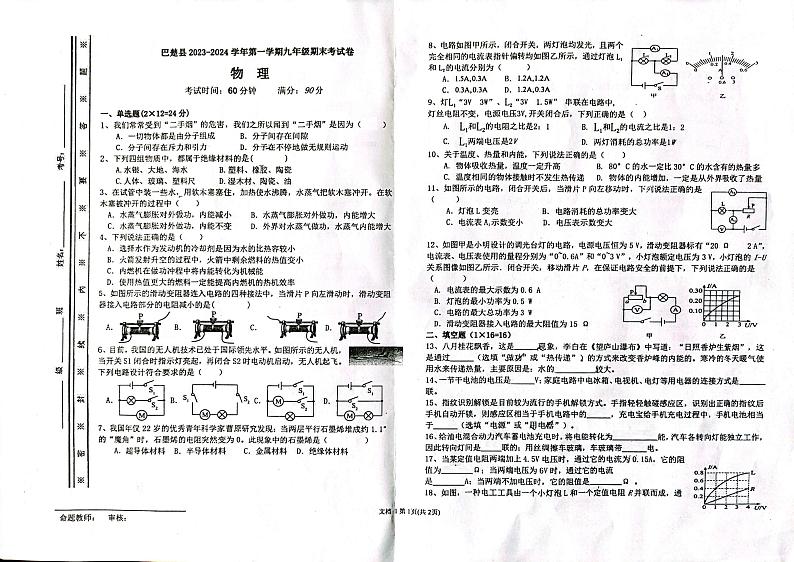 巴楚县 2023-2024 学年第一学期九年级期末考试卷
物 理
考试时间：60分钟 满分：90分
一、单选题(2×12=24 分)
1、我们常常受到“二手烟”的危害，我们之所以闻到“二手烟”是因为（ ）
A. 一切物体都是由分子组成 B. 分子间存在间隙
C. 分子间存在斥力和引力 D.分子在不停地做无规则运动
2、下列四组物质中，都属于绝缘材料的是( )
A.水银、大地、海水 B.塑料、橡胶、陶瓷
C.人体、玻璃、塑料尺 D.湿木材、陶瓷、油
3、在试管中装一些水，用软木塞塞住，加热使水沸腾，水蒸气把软木塞冲开。在软
木塞被冲开的过程中（ ）
A. 水蒸气膨胀对外做功，内能减小 B. 水蒸气膨胀对外做功，内能增大
C. 水蒸气膨胀对外做功，内能不变 D. 外界对水蒸气做功，水蒸气内能增大
4、下列说法正确的是( )
A. 选择水作为发动机的冷却剂是因为水的比热容较小
B. 火箭发射升空的过程中，火箭中剩余燃料的热值变小
C. 内燃机在做功冲程中将内能转化为机械能
D. 使用热值更大的燃料一定能提高内燃机的热机效率
5、如图所示的滑动变阻器连入电路的四种接法中，当滑片 P 向左滑动时，滑动变阻
器接入电路部分的电阻减小的是( )
A. B. C. D.
6、目前，我国的无人机技术已处于国际领先水平。如图所示的无人机，
当开关 S1 闭合时指示灯亮起，再闭合 S2 时电动机启动，无人机起飞。
下列电路设计符合要求的是（ ）
A. B. C. D.
7、我国年仅 22 岁的优秀青年科学家曹原研究发现：当两层平行石墨烯堆成约 1.1°
的“魔角”时，石墨烯的电阻突然变为 0。此现象中的石墨烯是（ ）
A. 超导体材料 B. 半导体材料 C. 金属材料 D. 绝缘体材料
命题教师： 审核：
8、电路如图甲所示，闭合开关，两灯泡均发光，且两个
完全相同的电流表指针偏转均如图乙所示，通过灯泡 L₁
和 L₂的电流分别为（ ）
A. 1.5A,0.3A B. 1.2A,1.2A
C. 0.3A,0.3A D. 1.2A,0.3A
甲 乙
9、灯L₁“3V 3W”、L₂“3V 1.5W” 串联在电路中，
灯丝电阻不变，电源电压3V,开关闭合后，下列正确的是( )
A. L₁和L₂的电阻之比是2：1 B. L₁和L₂的电流之比是1：2
C. L₁两端电压是2V D. 两灯消耗的总功率是1W
10、关于温度、热量和内能，下列说法正确的是（ ）
A. 物体吸收热量，温度一定升高 B. 80°C 的水一定比 30°C 的水含有的热量多
C. 温度相同的物体接触时不发生热传递 D. 物体的内能增加，一定是从外界吸收了热量
11、如图所示的电路，闭合开关后，当滑片 P 向左移动时，下列说法正确的是
（ ）
A. 灯泡 L 变亮 B. 电路消耗的总功率变大
C. 电流表 A,示数变小 D. 电压表示数变大
12、如图甲是小明设计的调光台灯的电路，电源电压恒为 5 V，滑动变阻器标有“20 Ω 2 A”，
电流表、电压表使用的量程分别为“0~0.6A”和“0~3 V”，小灯泡额定电压为 3 V，小灯泡的 I-U
关系图像如图乙所示．闭合开关，移动滑片 P，在保证电路安全的前提下，下列说法正确的是
（ ）
A. 电流表的最大示数为 0.6 A
B. 灯泡的最小功率为 0.5 W
C. 电路的最大总功率为 3 W
D. 滑动变阻器接入电路的最大阻值为 15 Ω
甲 乙
二、填空题（1×16=16）
13、八月桂花飘香，这是____现象，李白在《望庐山瀑布》中写道：“日照香炉生紫烟”，这
是通过____（选填“做功”或“热传递”）的方式来改变香炉峰的内能的。寒冷的冬天暖气使
用水来传送热量，主要原因是：水的________较大。
14、一节干电池的电压是____V；家庭电路中电冰箱、电视机、电灯等用电器的连接方式是____
联。
15、指纹识别解锁是目前较为流行的手机解锁方式。手指轻轻触碰感应区，识别出正确的指纹后
手机自动开锁，则感应区相当于手机电路中的____，充电宝给手机充电过程中，手机电池相当
于____（选填“电源”或“用电器”）。
16、给油电混合动力汽车蓄电池充电时，将电能转化为____能，汽车各转向灯能独立工作，
因此转向灯间是____联的；用丝绸擦车玻璃，车玻璃带____电。
17、当某定值电阻两端加上 4.5V 电压时，通过它的电流为 0.15A。它的阻
值为____Ω；当两端电压为 6V 时，通过它的电流
是____A；当两端不加电压时，它的阻值是____Ω。
18、如图，一种电工工具由一个小灯泡 L 和一个定值电阻 R 并联而成，通
第 1页(共 2页)